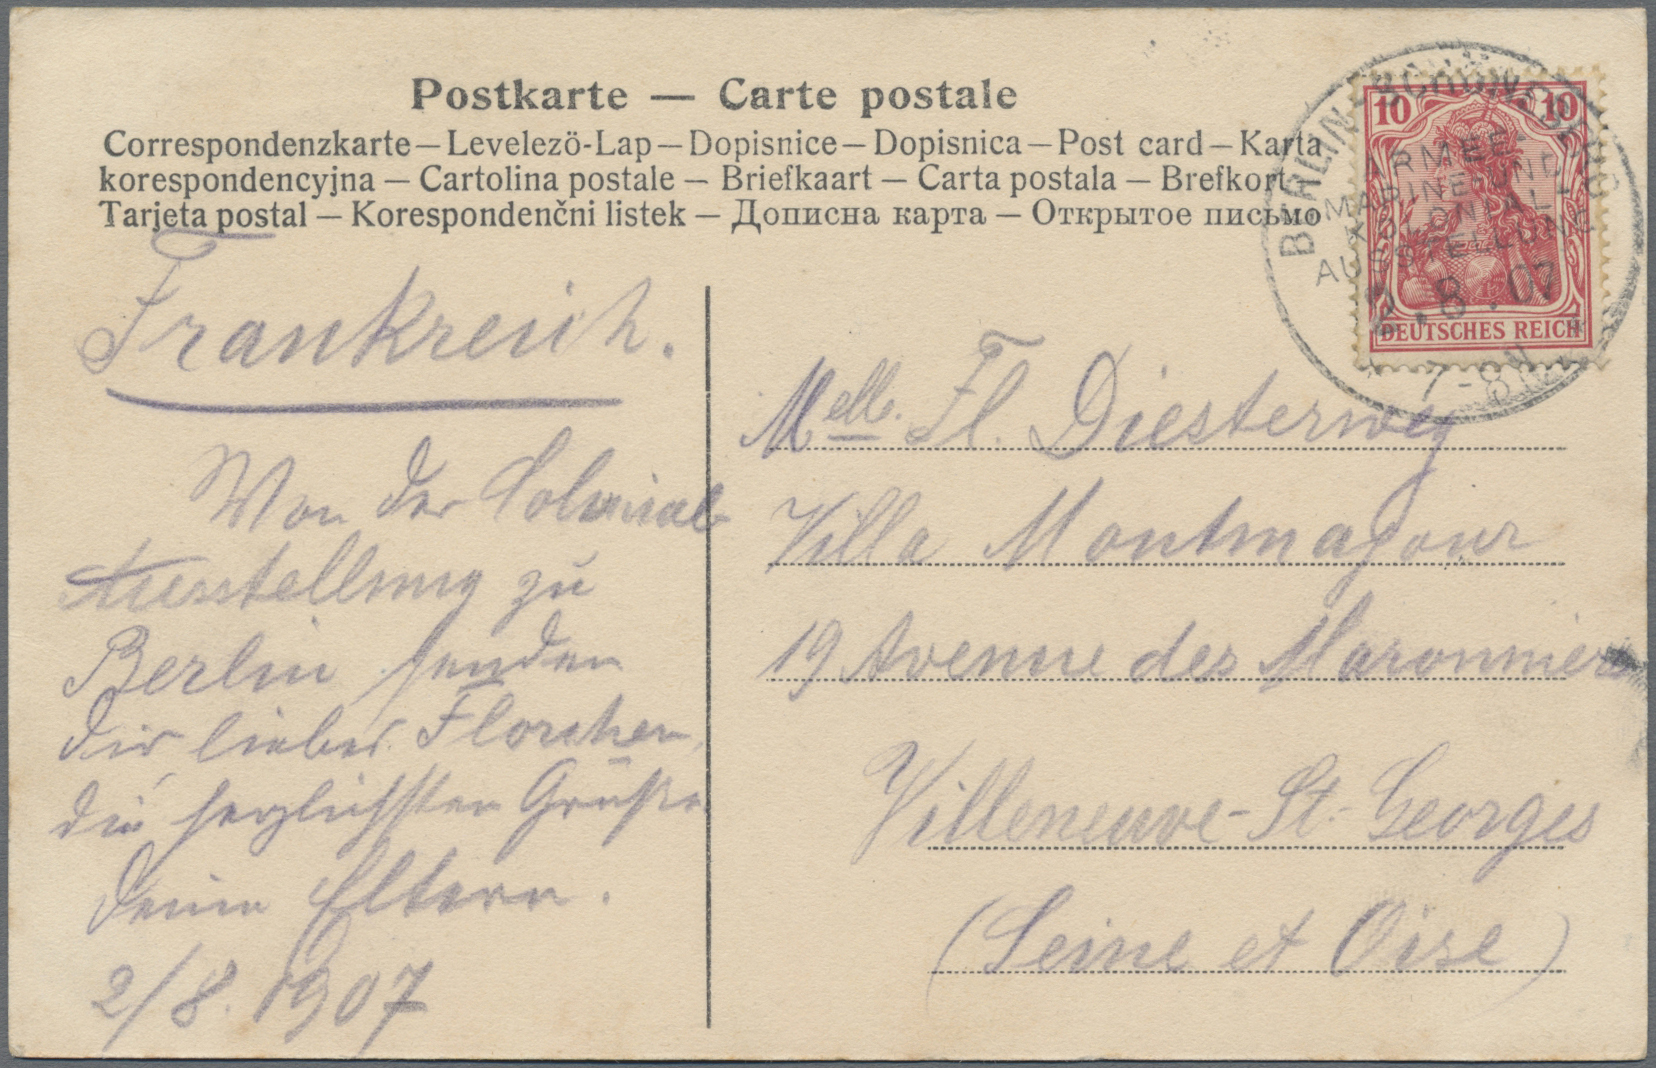 Postkarte — Carte postale
Correspondenzkarte – Levelezö-Lap – Dopisnice – Dopisnica – Post card – Karta
korespondencyjna – Cartolina postale – Briefkaart – Carta postala – Brefkort
Tarjeta postal – Korespondenčni listek – Дописна карта – Открытое письмо
BERLIN-SCHÖNEBERG
ARMEE-
MARINE-UND
KOLONIAL-
AUSSTELLUNG
2.8.07
7-8N.
10 10
DEUTSCHES REICH
Frankreich.
Von der Colonial
Ausstellung zu
Berlin senden
dir liebes Florchen,
die herzlichsten Grüße
deine Eltern.
2/8. 1907
Melle. Fl. Diesterweg
Villa Montmajour
19 Avenue des Maronniers
Villeneuve-St. Georges
(Seine et Oise)